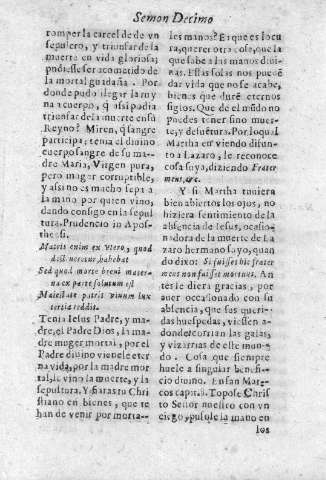 Sermon Decimo
romper la carcel de de vn
sepulcro, y triunfar de la
muerte en vida gloriosa;
pudiesse ser acometido de
la mortal guidaña. Por
donde pudo llegar la ruy
na a cuerpo, q̃ assi podia
triunfar de la muerte en su
Reyno? Miren, q̃ sangre
participa; tenia el diuino
cuerpo sangre de su ma-
dre Maria, Virgen pura,
pero muger corruptible,
y assi no es mucho sepa
la mano por quien vino,
dando consigo en la sepul
tura, Prudencio in Apos-
the si.
Matris enim ex vtero, quod
deficeretur habebat
Sed quod morte breui mater-
na ex parte solutum est
Maiestate patris viuum lux
tertia reddit.
Tenia Iesus Padre, y ma-
dre, el Padre Dios, la ma-
dre muger mortal, por el
Padre diuino viene le eter
na vida, por la madre mor
tal, le vino la muerte, y la
sepultura. Y si aras tu Chri
stiano en bienes, que te
han de venir por morta--
les manos? Es que es locu
ra, querer otra cosa, que la
que sabe a las manos diui-
nas. Essas solas nos puedẽ
dar vida que no se acabe,
bienes que durẽ eternos
siglos. Que de el mũdo no
puedes tener sino muer-
te, y desuẽtura. Por lo qual
Martha en viendo difun-
to a Lazaro, le reconoce
cosa suya, diziendo Frater
meus, &c.
Y si Martha tuuiera
bien abiertos los ojos, no
hiziera sentimiento de la
absencia de Iesus, ocasio-
nadora de la muerte de La
zaro hermano suyo, quan
do dixo: Si fuisses hic frater
meus non fuisset mortuus. An
tes le diera gracias, por
auer ocasionado con su
absencia, que sus queri-
das huespedas, viessen a-
donde corrian las galas,
y vizarrias de este mun-
do. Cosa que siempre
huele a singular benefi-
cio diuino. En san Mar-
cos capit. 8. Topose Chris
to Señor nuestro con vn
ciego, pusole la mano en
los